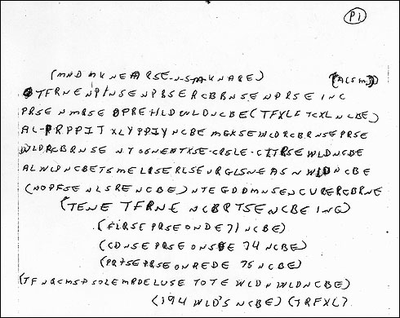 P1
(MND MKNEARSE-N-S-M-KNARE) (ACSM)
TFRNE NPINSE NPBSERCBBNSE NPRSE INC
PRSE NMRSE OPREHLDWLDNCBE (TFXLF TCXL NCBE)
AL-PRPPIT XLYPPIY NCBE MGKSEWLDRCBRNSE PRSE
WLDRCBRNSE NTSGNENTXSE-CRSLE-CITRSE WLDNCBE
ALWLDNCBETSMELRSERLSEURGLSNEASNWLDNCBE
(NOPFSE NLSRE NCBE) NTEGDDMNSENCURERCBRNE
(TENE TFRNE NCBRTSE NCBE INC)
(FLRSE PRSE ONDE 71 NCBE)
(CDNSE PRSE ONSDE 74 NCBE)
(PRTSE PRSE ONREDE 75 NCBE)
(TFNQCMSP SOLE MRDELUSE TOTE WLDN WLDNCBE)
(194 WLD'S NCBE) (TRFXL)